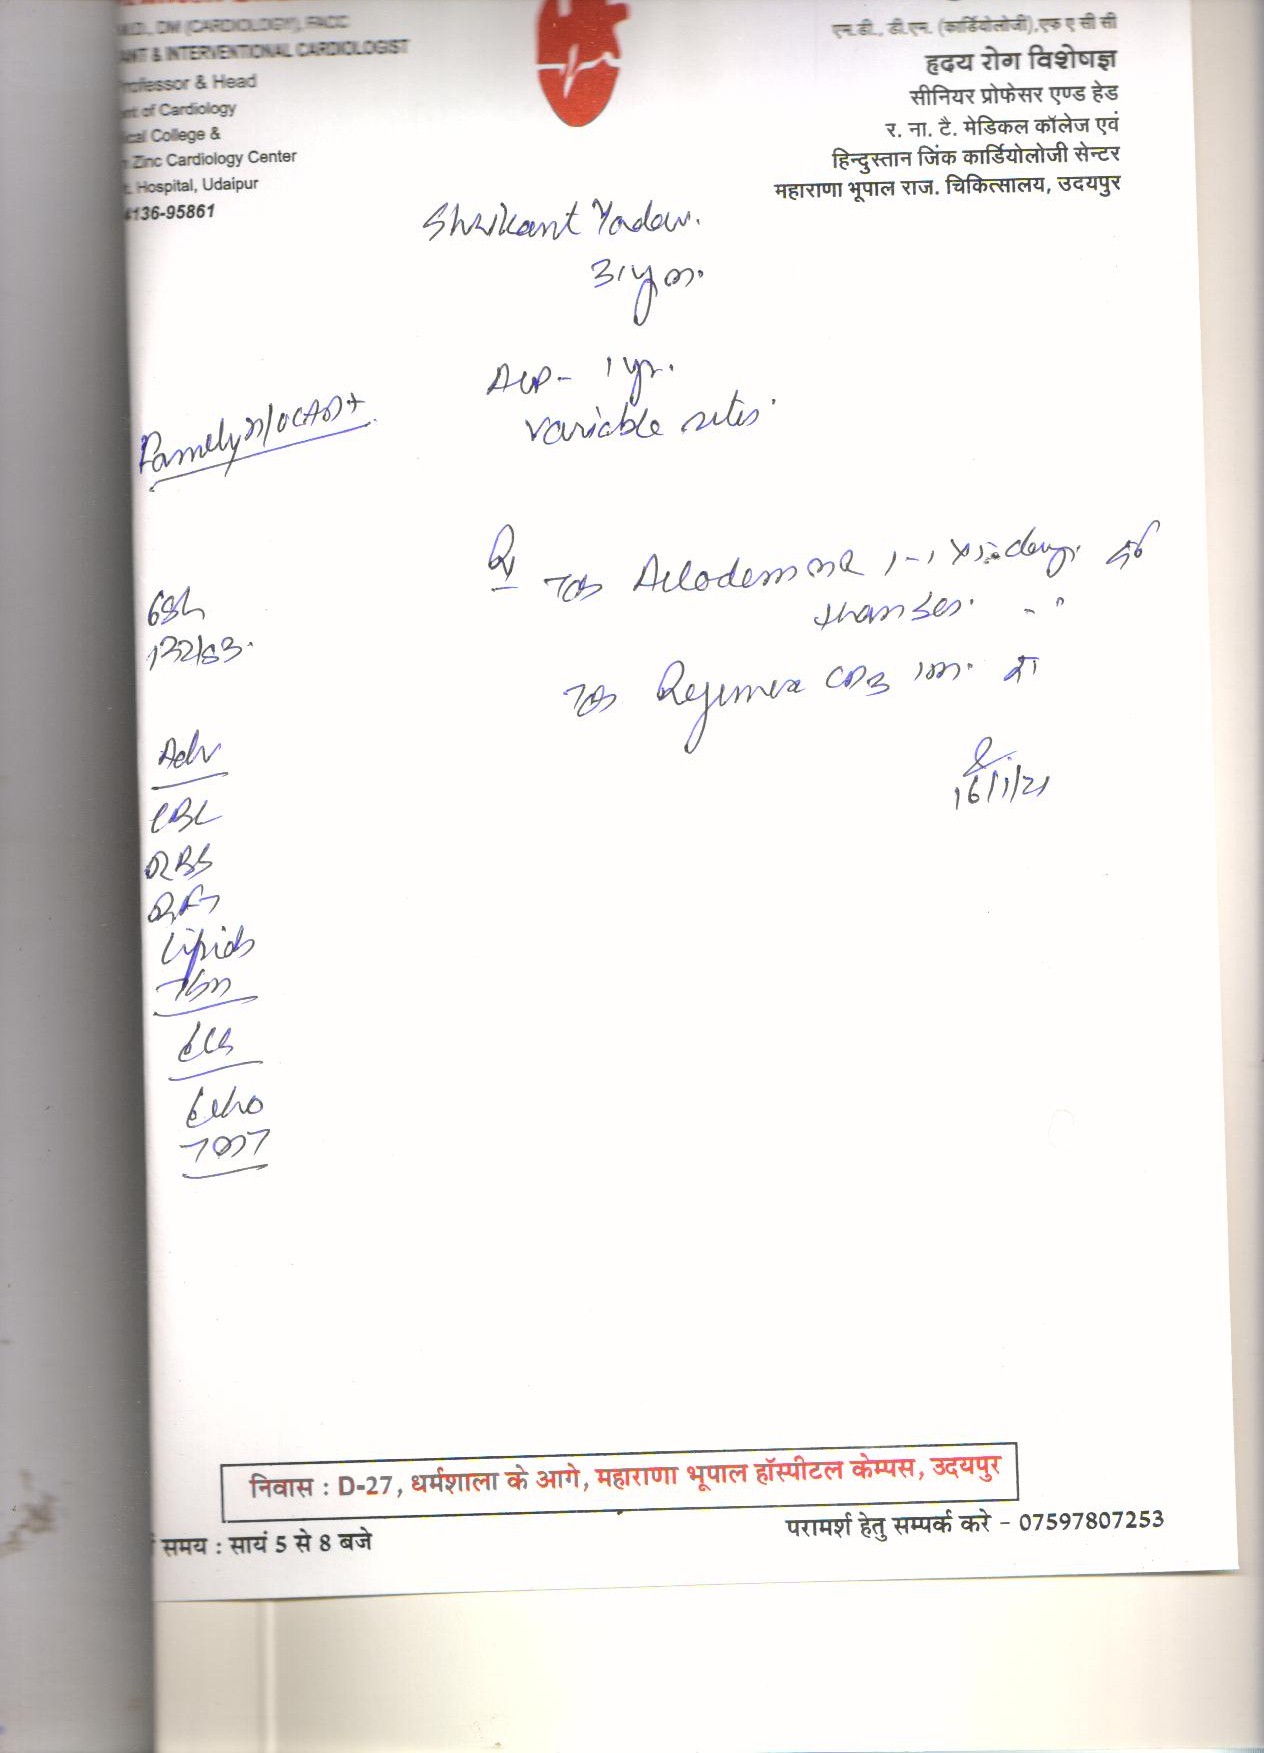 M.D., DM (CARDIOLOGY), FACC
ANT & INTERVENTIONAL CARDIOLOGIST
rofessor & Head
nt of Cardiology
ical College &
Zinc Cardiology Center
t. Hospital, Udaipur
4136-95861
एम.डी., डी.एम. (कार्डियोलोजी), एफ ए सी सी
हृदय रोग विशेषज्ञ
सीनियर प्रोफेसर एण्ड हेड
र. ना. टै. मेडिकल कॉलेज एवं
हिन्दुस्तान जिंक कार्डियोलोजी सेन्टर
महाराणा भूपाल राज. चिकित्सालय, उदयपुर
Shrikant Yadav.
31 y m.
ACP - 1 yr.
variable sites.
Family H/O CAD +
68/
132/83.
Rx Tab
than SOS.
Tab CD3
16/1/21
Adv
CBC
RBS
RFT
Lipids
TSH
ECG
Echo
TMT
निवास : D-27, धर्मशाला के आगे, महाराणा भूपाल हॉस्पीटल केम्पस, उदयपुर
समय : सायं 5 से 8 बजे
परामर्श हेतु सम्पर्क करे - 07597807253